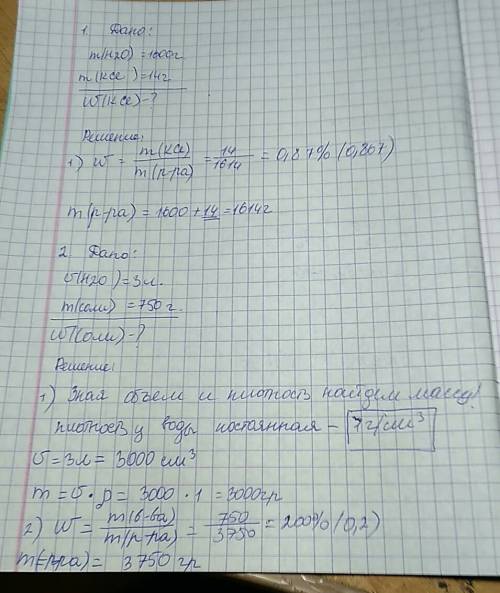 1. Дано:
m(H2O) = 1600г
m(KCl) = 14г
W(KCl) - ?
Решение:
1) W = m(KCl)/m(р-ра) = 14/1614 = 0,87% (0,867)
m(р-ра) = 1600 + 14 = 1614г
2. Дано:
V(H2O) = 3л.
m(соли) = 750 г.
W(соли) - ?
Решение:
1) Зная объем и плотность найдем массу!
плотность у воды постоянная - 1 г/см³
V = 3л = 3000 см³
m = V · p = 3000 · 1 = 3000гр
2) W = m(в-ва)/m(р-ра) = 750/3750 = 200% (0,2)
m(р-ра) = 3750 гр